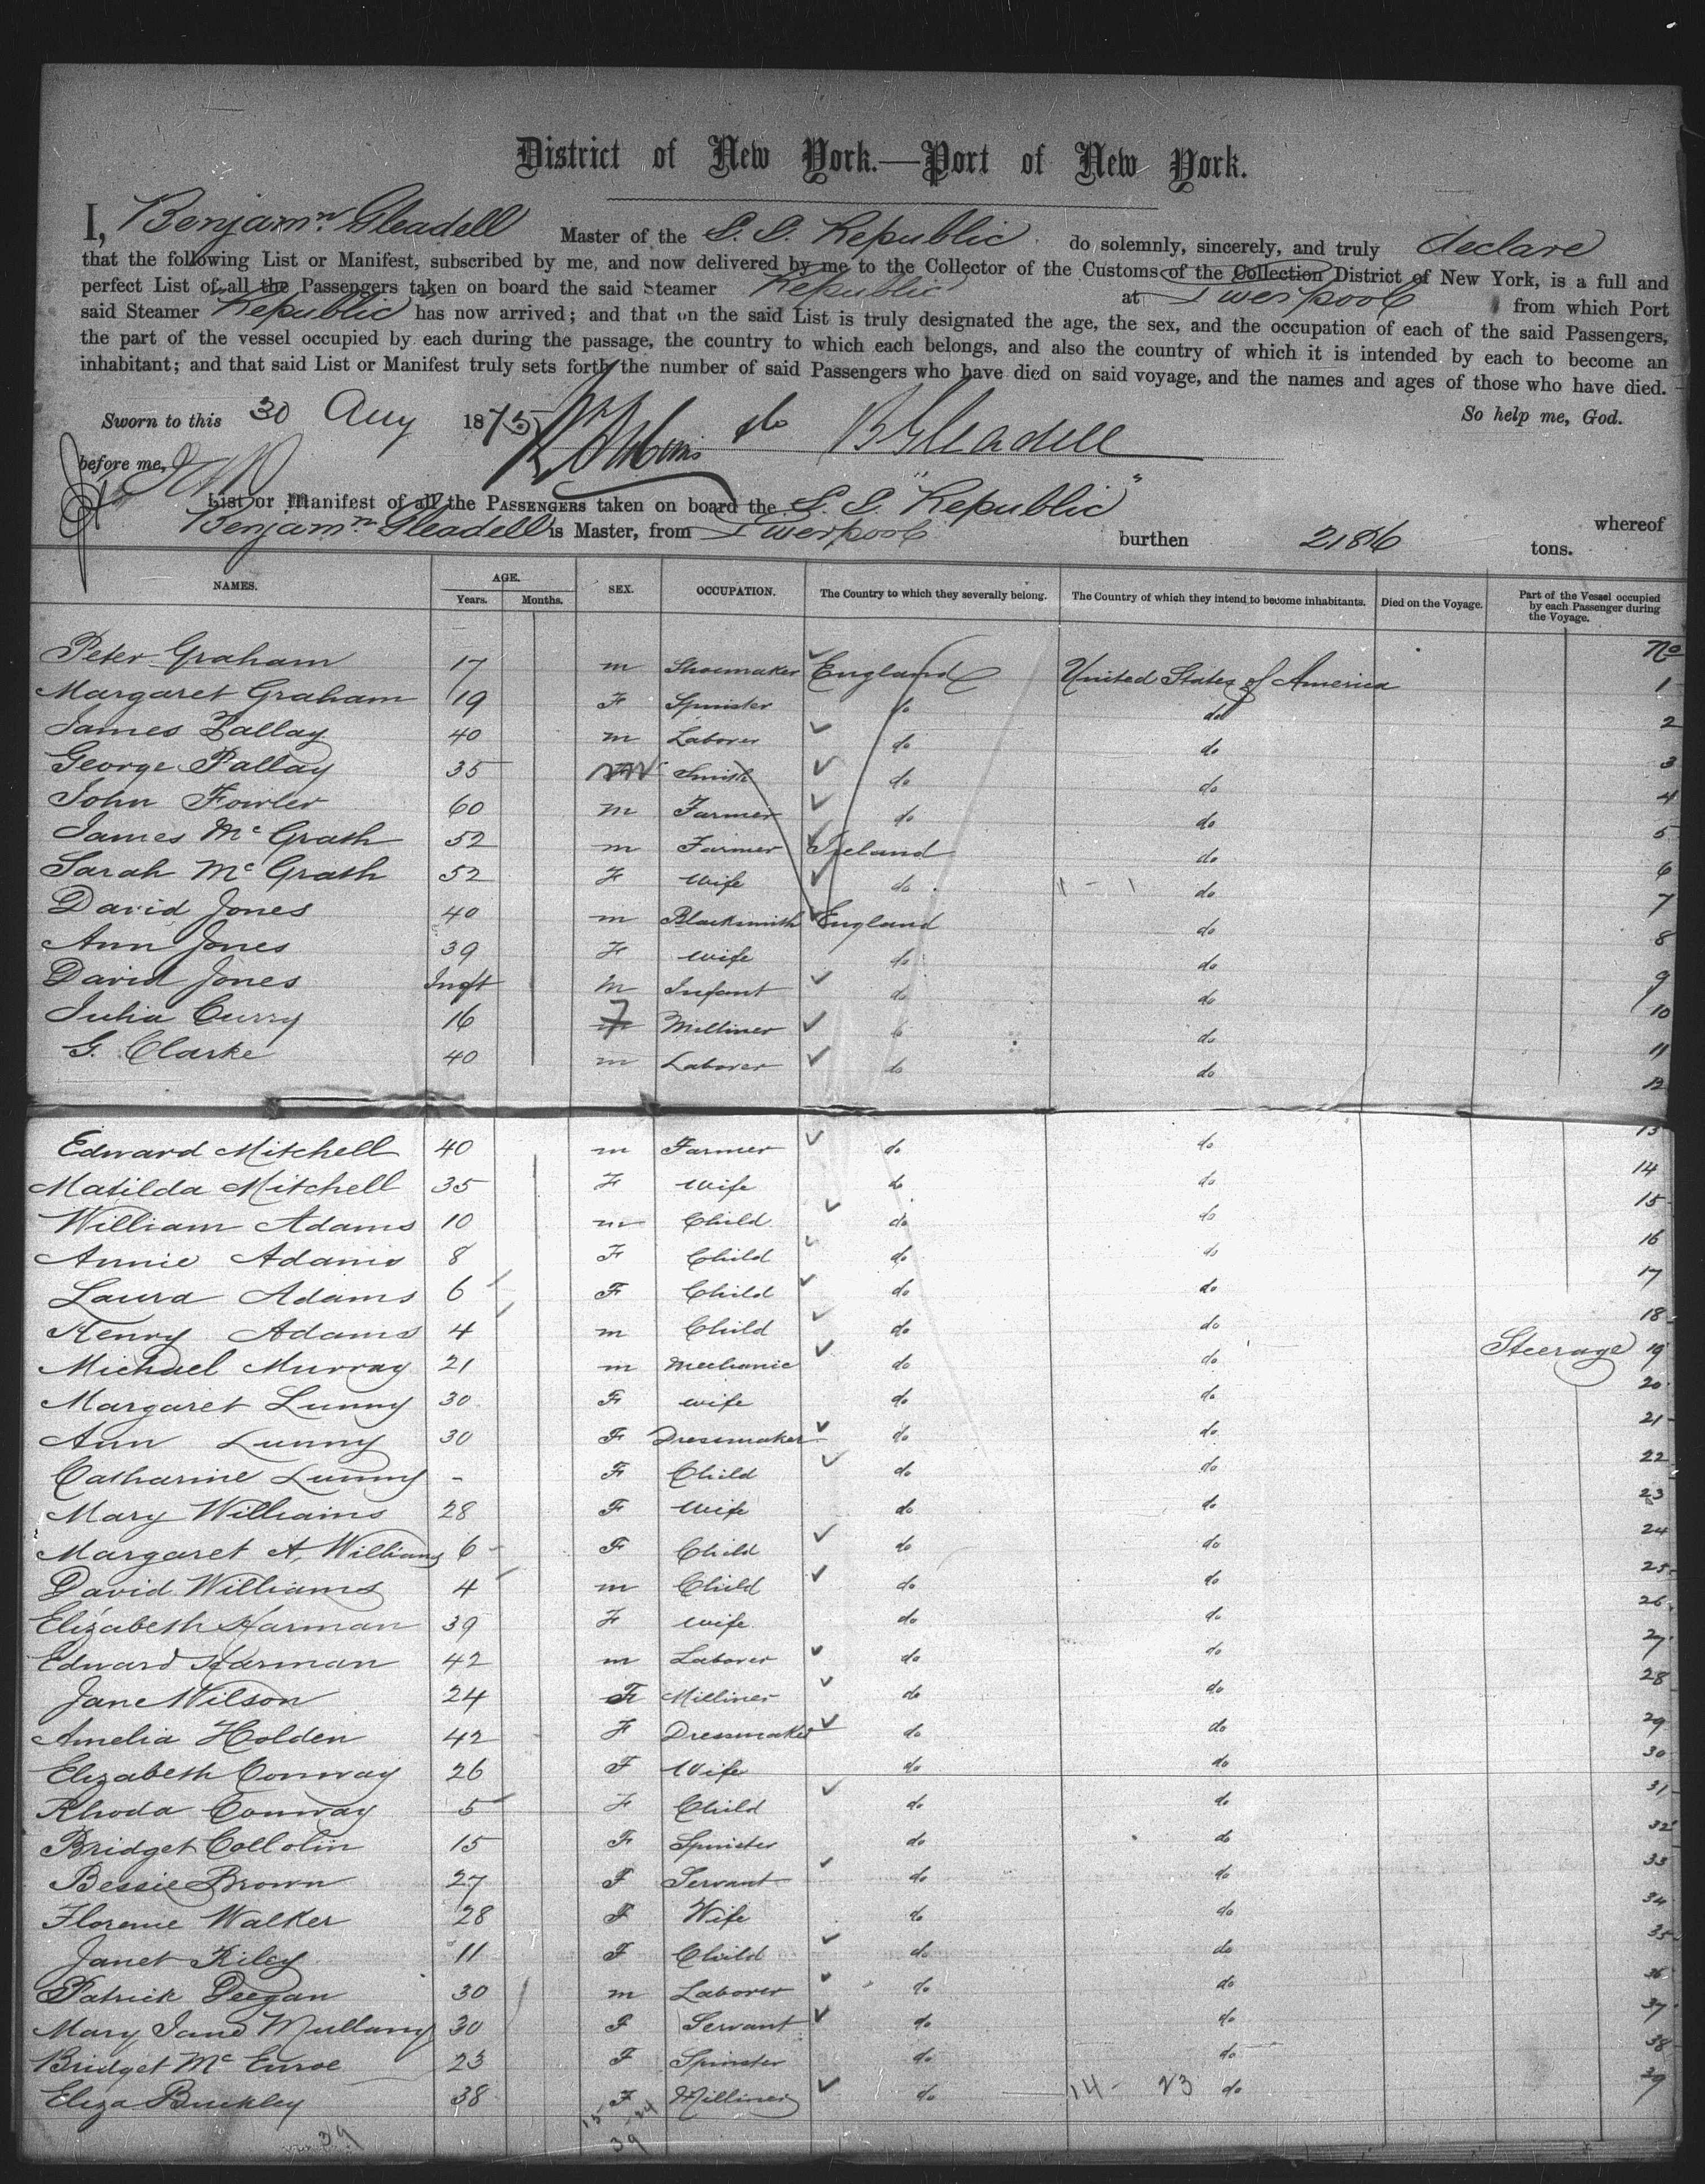 District of New York.—Port of New York.
I, Benjamn Gleadell Master of the S. S. Republic do solemnly, sincerely, and truly declare
that the following List or Manifest, subscribed by me, and now delivered by me to the Collector of the Customs of the Collection District of New York, is a full and
perfect List of all the Passengers taken on board the said Steamer Republic at Liverpool from which Port
said Steamer Republic has now arrived; and that on the said List is truly designated the age, the sex, and the occupation of each of the said Passengers,
the part of the vessel occupied by each during the passage, the country to which each belongs, and also the country of which it is intended by each to become an
inhabitant; and that said List or Manifest truly sets forth the number of said Passengers who have died on said voyage, and the names and ages of those who have died.
So help me, God.
Sworn to this 30 Aug 1875 B Gleadell
before me,
List or Manifest of all the PASSENGERS taken on board the S. S. "Republic" whereof
Benjamn Gleadell is Master, from Liverpool burthen 2186 tons.
NAMES. AGE. Years. Months. SEX. OCCUPATION. The Country to which they severally belong. The Country of which they intend to become inhabitants. Died on the Voyage. Part of the Vessel occupied by each Passenger during the Voyage.
No
Peter Graham 17 m Shoemaker England United States of America 1
Margaret Graham 19 F Spinster do do 2
James Pallay 40 m Laborer do do 3
George Pallay 35 Smith do do 4
John Fowler 60 m Farmer do do 5
James Mc Grath 52 m Farmer Ireland do 6
Sarah Mc Grath 52 F Wife do 1 - 1 do 7
David Jones 40 m Blacksmith England do 8
Ann Jones 39 F Wife do do 9
David Jones Inft m Infant do do 10
Julia Curry 16 F Milliner do do 11
G. Clarke 40 m Laborer do do 12
Edward Mitchell 40 m Farmer do do 13
Matilda Mitchell 35 F Wife do do 14
William Adams 10 m Child do do 15
Annie Adams 8 F Child do do 16
Laura Adams 6 F Child do do 17
Henry Adams 4 m Child do do 18
Michael Murray 21 m Mechanic do do Steerage 19
Margaret Lunny 30 F Wife do do 20
Ann Lunny 30 F Dressmaker do do 21
Catharine Lunny - F Child do do 22
Mary Williams 28 F Wife do do 23
Margaret A. Williams 6 F Child do do 24
David Williams 4 m Child do do 25
Elizabeth Harman 39 F Wife do do 26
Edward Harman 42 m Laborer do do 27
Jane Wilson 24 F Milliner do do 28
Amelia Holden 42 F Dressmaker do do 29
Elizabeth Conway 26 F Wife do do 30
Rhoda Conway 5 F Child do do 31
Bridget Collolin 15 F Spinster do do 32
Bessie Brown 27 F Servant do do 33
Florence Walker 28 F Wife do do 34
Janet Riley 11 F Child do do 35
Patrick Deegan 30 m Laborer do do 36
Mary Jane Mullany 30 F Servant do do 37
Bridget Mc Enroe 23 F Spinster do do 38
Eliza Buckley 38 F Milliner do 14 - 23 do 39
39 15 - 24
39